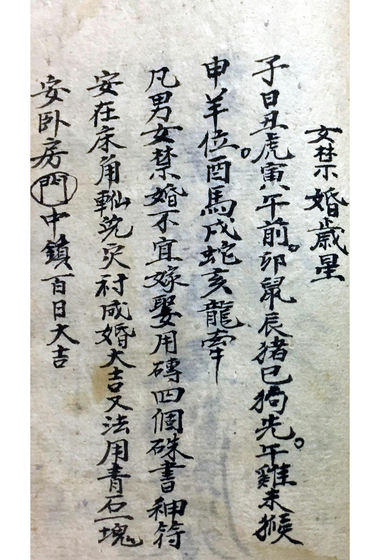 女禁婚歳星
子日丑虎寅午前。卯鼠辰猪巳狗先。午雞未猴
申羊位。酉馬戌蛇亥龍牽
凡男女禁婚不宜嫁娶用磚四個硃書神符
安在床角灾成婚大吉又法用青石一塊
安卧房門中鎮百日大吉